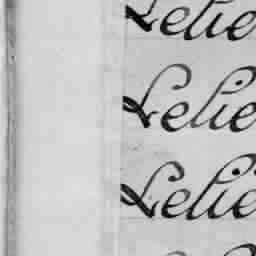 Lelie
Lelie
Lelie